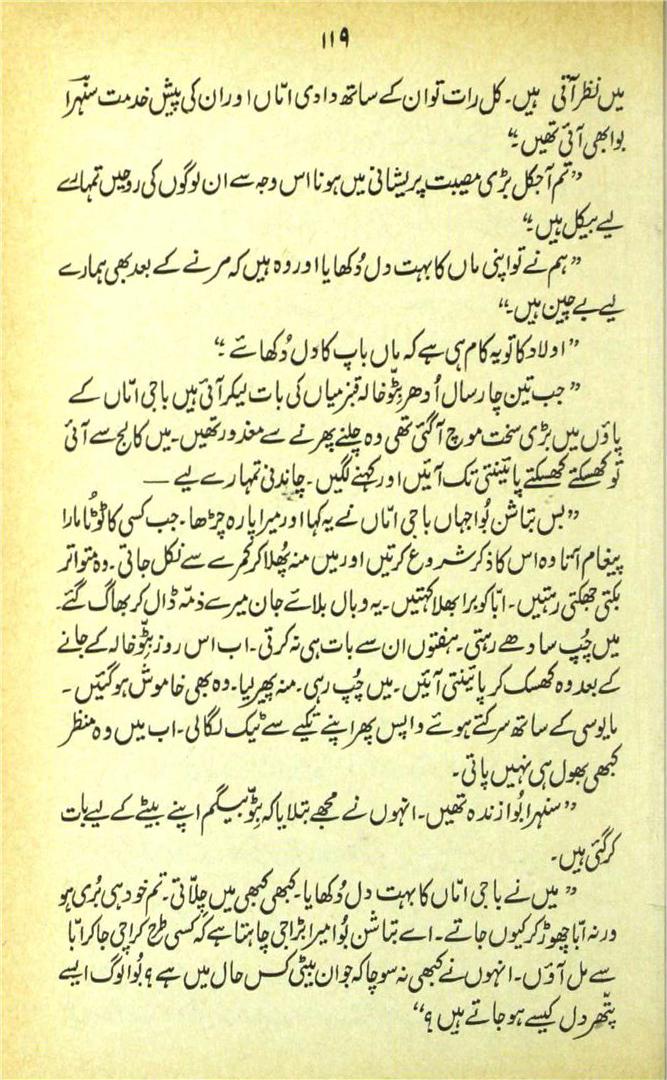 ۱۱۹
میں نظر آتی ہیں۔ کل رات تو ان کے ساتھ دادی اماں اور ان کی پیش خدمت سنہرا
بوا بھی آئی تھیں۔“
”تم آجکل بڑی مصیبت پریشانی میں ہو نا اس وجہ سے ان لوگوں کی روحیں تمہارے
لیے بیکل ہیں۔“
”ہم نے تو اپنی ماں کا بہت دل دُکھایا اور وہ ہیں کہ مرنے کے بعد بھی ہمارے
لیے بے چین ہیں۔“
”اولاد کا تو یہ کام ہی ہے کہ ماں باپ کا دل دُکھائے۔“
”جب تین چار سال اُدھر بِٹّو خالہ قنبر میاں کی بات لیکر آئی ہیں باجی امّاں کے
پاؤں میں بڑی سخت موچ آگئی تھی وہ چلنے پھرنے سے معذور تھیں۔ میں کالج سے آئی
تو کھسکتے کھسکتے پائینتی تک آئیں اور کہنے لگیں۔ چاندنی تمہارے لیے —
”بس بتاشن بُوا جہاں باجی امّاں نے یہ کہا اور میرا پارہ چڑھا۔ جب کسی کا ٹوٹا مارا
پیغام آتا وہ اس کا ذکر شروع کرتیں اور میں منہ پُھلا کر کمرے سے نکل جاتی۔ وہ متواتر
بکتی جھکتی رہتیں۔ ابّا کو برا بھلا کہتیں۔ یہ وبال بلائے جان میرے ذمّہ ڈال کر بھاگ گئے۔
میں چُپ سادھے رہتی۔ ہفتوں ان سے بات ہی نہ کرتی۔ اب اس روز بِٹّو خالہ کے جانے
کے بعد وہ کھسک کر پائینتی آئیں۔ میں چُپ رہی۔ منہ پھیر لیا۔ وہ بھی خاموش ہو گئیں۔
مایوسی کے ساتھ سرکتے ہوئے واپس پھر اپنے تکیے سے ٹیک لگالی۔ اب میں وہ منظر
کبھی بھول ہی نہیں پاتی۔
”سنہرا بُوا زندہ تھیں۔ انہوں نے مجھے بتلایا کہ بِٹّو بیگم اپنے بیٹے کے لیے بات
کر گئی ہیں۔
”میں نے باجی امّاں کا بہت دل دُکھایا۔ کبھی کبھی میں چلّاتی۔ تم خود ہی بُری ہو
ورنہ ابّا چھوڑ کر کیوں جاتے۔ اے بتاشن بُوا میرا بڑا جی چاہتا ہے کہ کسی طرح کراچی جا کر ابّا
سے مل آؤں۔ انہوں نے کبھی نہ سوچا کہ جوان بیٹی کس حال میں ہے؟ بُوا لوگ ایسے
پتّھر دل کیسے ہو جاتے ہیں؟“